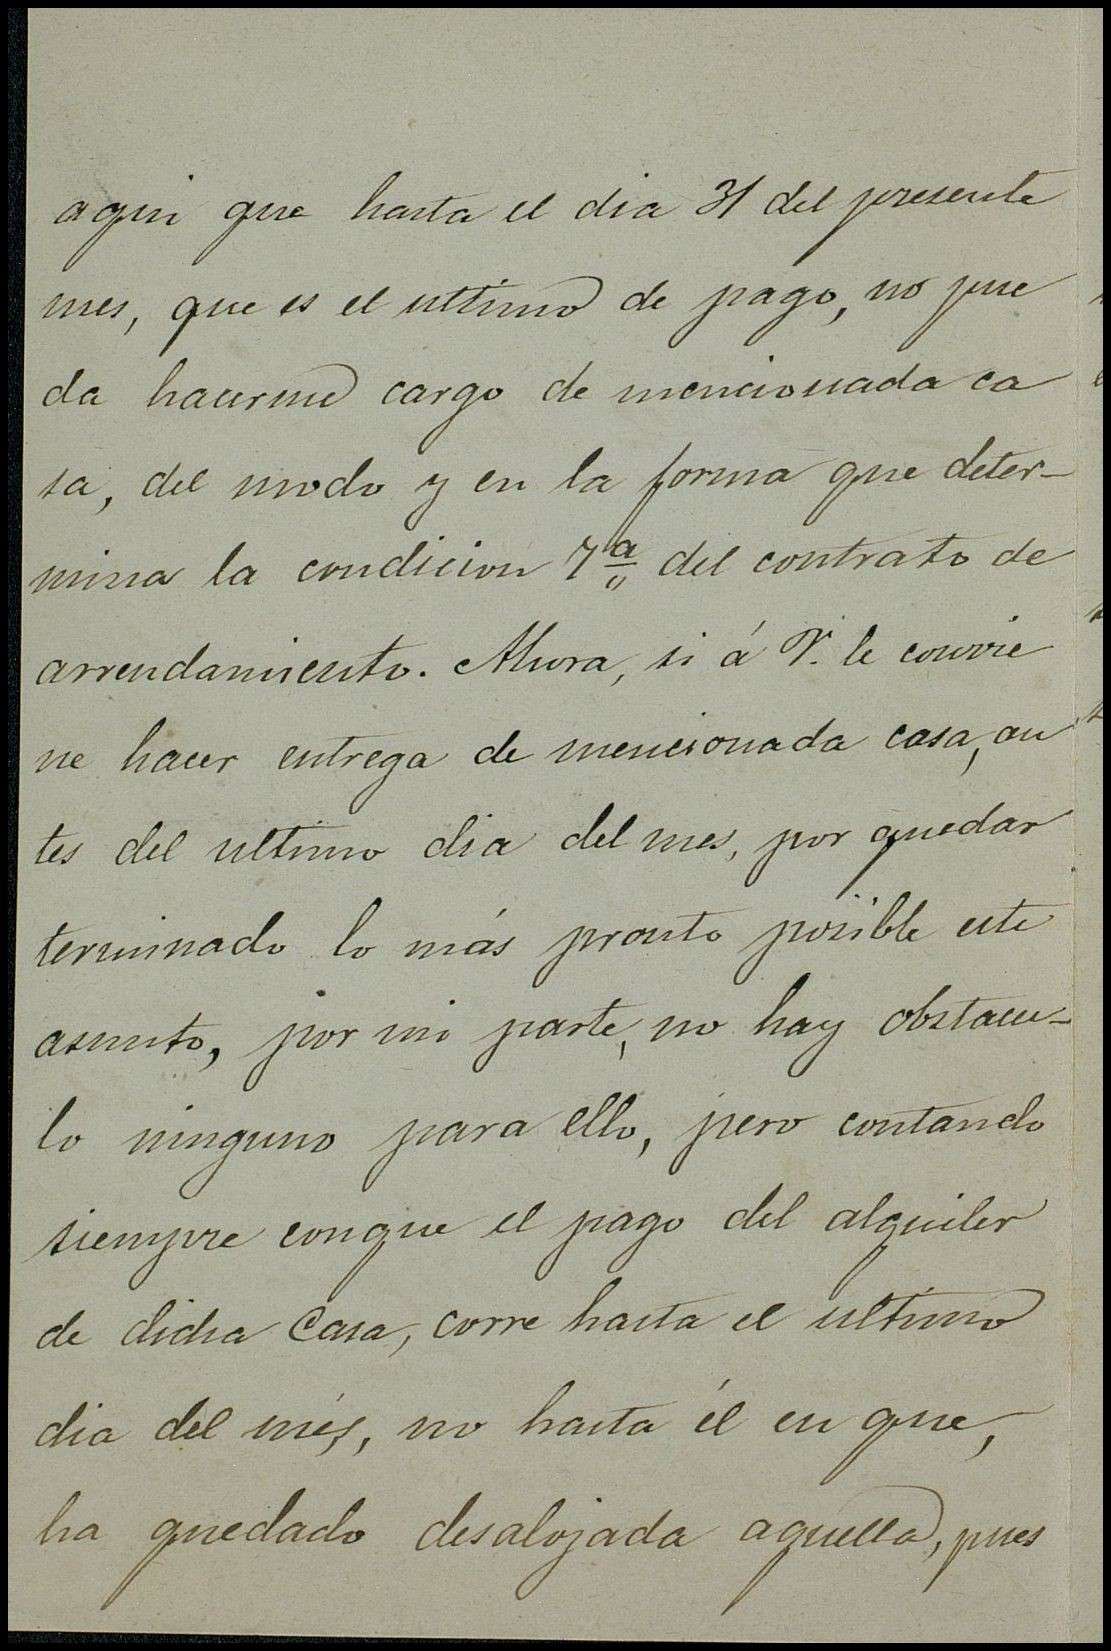 aqui que hasta el dia 31 del presente
mes, que es el ultimo de pago, no pue
da hacerme cargo de mencionada ca
sa, del modo y en la forma que deter-
mina la condicion 7ª del contrato de
arrendamiento. Ahora, si á V. le convie
ne hacer entrega de mencionada casa, an
tes del ultimo dia del mes, por quedar
terminado lo más pronto posible este
asunto, por mi parte, no hay obstacu-
lo ninguno para ello, pero contando
siempre conque el pago del alquiler
de dicha Casa, corre hasta el ultimo
dia del més, no hasta él en que,
ha quedado desalojada aquella, pues